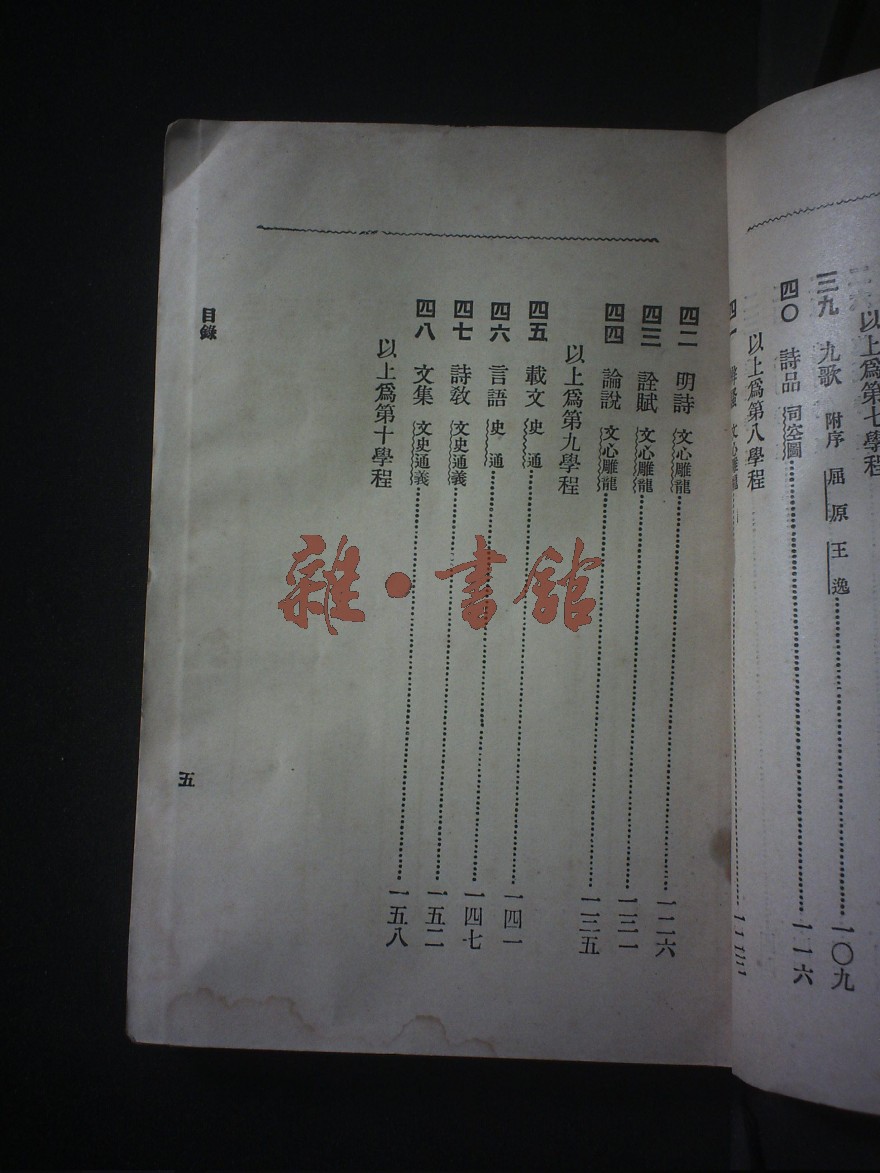 以上爲第七學程
三九 九歌 附序 屈原 王逸……一〇九
四〇 詩品 司空圖……一一六
以上爲第八學程
四一 辨騷 文心雕龍……
四二 明詩 文心雕龍……一二六
四三 詮賦 文心雕龍……一三一
四四 論說 文心雕龍……一三五
以上爲第九學程
四五 載文 史通……一四一
四六 言語 史通……一四七
四七 詩敎 文史通義……一五二
四八 文集 文史通義……一五八
以上爲第十學程
目錄
五
雜·書館